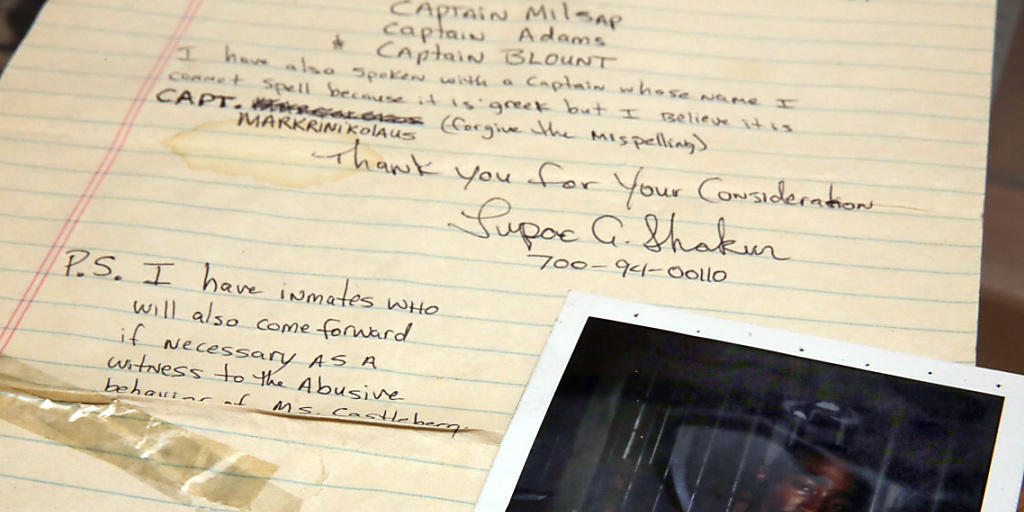 CAPTAIN MILSAP
Captain Adams
* CAPtain BLOUNT
I have also spoken with a Captain whose name I
cannot spell because it is greek but I Believe it is
CAPT.
MARKRINIKOLAUS (forgive the Mispelling)
Thank you for Your Consideration
Tupac A. Shakur
700-94-00110
P.S. I have inmates WHO
will also come forward
if Necessary AS A
witness to the Abusive
behavior of Ms. Castleberry